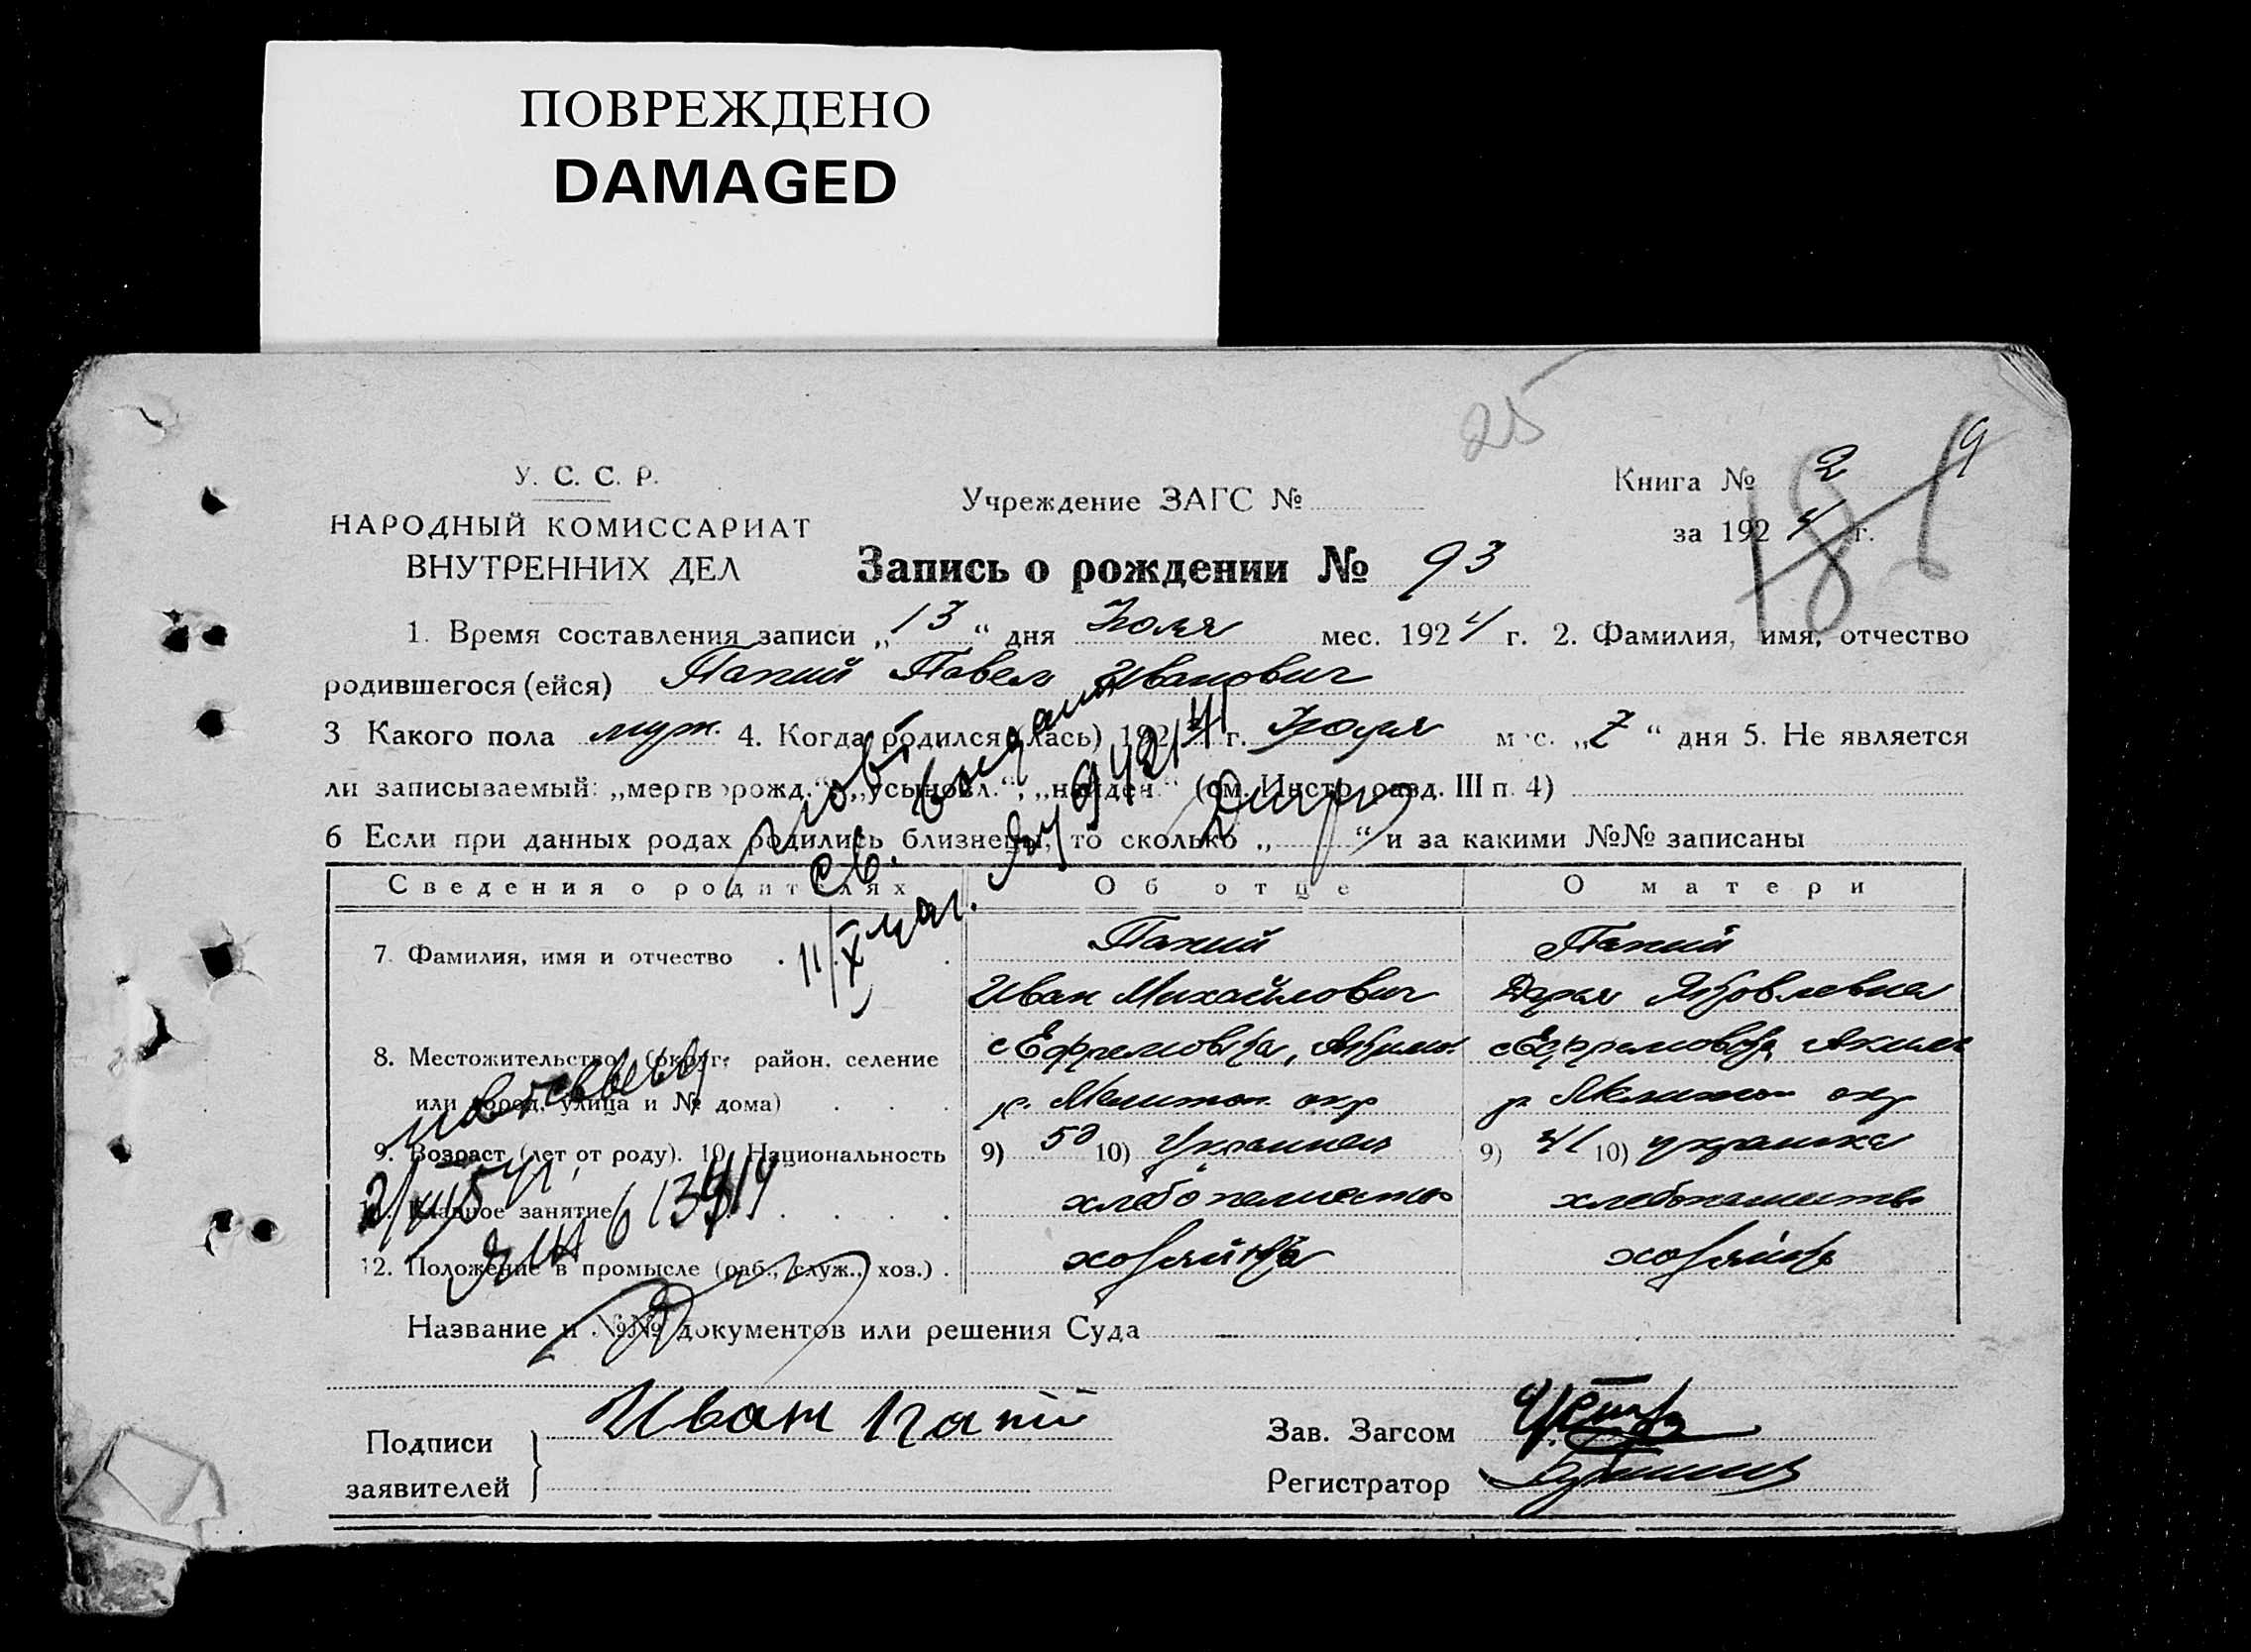 ПОВРЕЖДЕНО
DAMAGED
25
У. С. С. Р.
НАРОДНЫЙ КОМИССАРИАТ
ВНУТРЕННИХ ДЕЛ
Учреждение ЗАГС №
Книга № 2
за 1924 г.
18
Запись о рождении № 93
1. Время составления записи „13“ дня Июля мес. 1924 г. 2. Фамилия, имя, отчество
родившегося (ейся) Папий Павел Иванович
3 Какого пола муж. 4. Когда родился (лась) 1924 г. Июля мес. „7“ дня 5. Не является
ли записываемый: „мертворожд.“, „усыновл.“, „найден.“ (см. Инстр. разд. III п. 4)
6 Если при данных родах родились близнецы, то сколько „ “ и за какими №№ записаны
Сведения о родителях Об отце О матери
7. Фамилия, имя и отчество Папий Папий
Иван Михайлович Дарья Яковлевна
8. Местожительство (округ, район, селение с Ефремовка, Аким. с Ефремовка Аким
или город, улица и № дома) р. Мелитоп окр р. Мелитоп окр
9. Возраст (лет от роду). 10. Национальность 9) 50 10) Украинец 9) 41 10) украинка
11. Главное занятие хлебопашество хлебопашество
12. Положение в промысле (раб., служ., хоз.)
Название и №№ документов или решения Суда
Подписи
заявителей
Иван Папій
Зав. Загсом
Регистратор